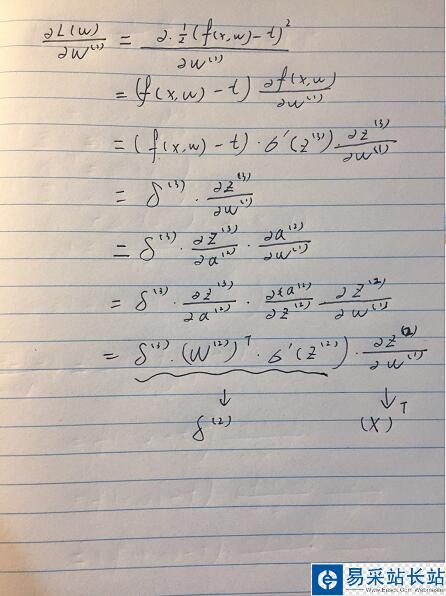 ∂L(w)/∂w⁽¹⁾ = ∂·½(f(x,w)-t)²/∂w⁽¹⁾
= (f(x,w)-t) ∂f(x,w)/∂w⁽¹⁾
= (f(x,w)-t)·σ'(z⁽³⁾) ∂z⁽³⁾/∂w⁽¹⁾
= δ⁽³⁾·∂z⁽³⁾/∂w⁽¹⁾
= δ⁽³⁾·∂z⁽³⁾/∂a⁽²⁾·∂a⁽²⁾/∂w⁽¹⁾
= δ⁽³⁾·∂z⁽³⁾/∂a⁽²⁾·∂a⁽²⁾/∂z⁽²⁾ ∂z⁽²⁾/∂w⁽¹⁾
= δ⁽³⁾·(W⁽²⁾)ᵀ·σ'(z⁽²⁾)·∂z⁽²⁾/∂w⁽¹⁾
↓ ↓
δ⁽²⁾ (X)ᵀ
易采站长站